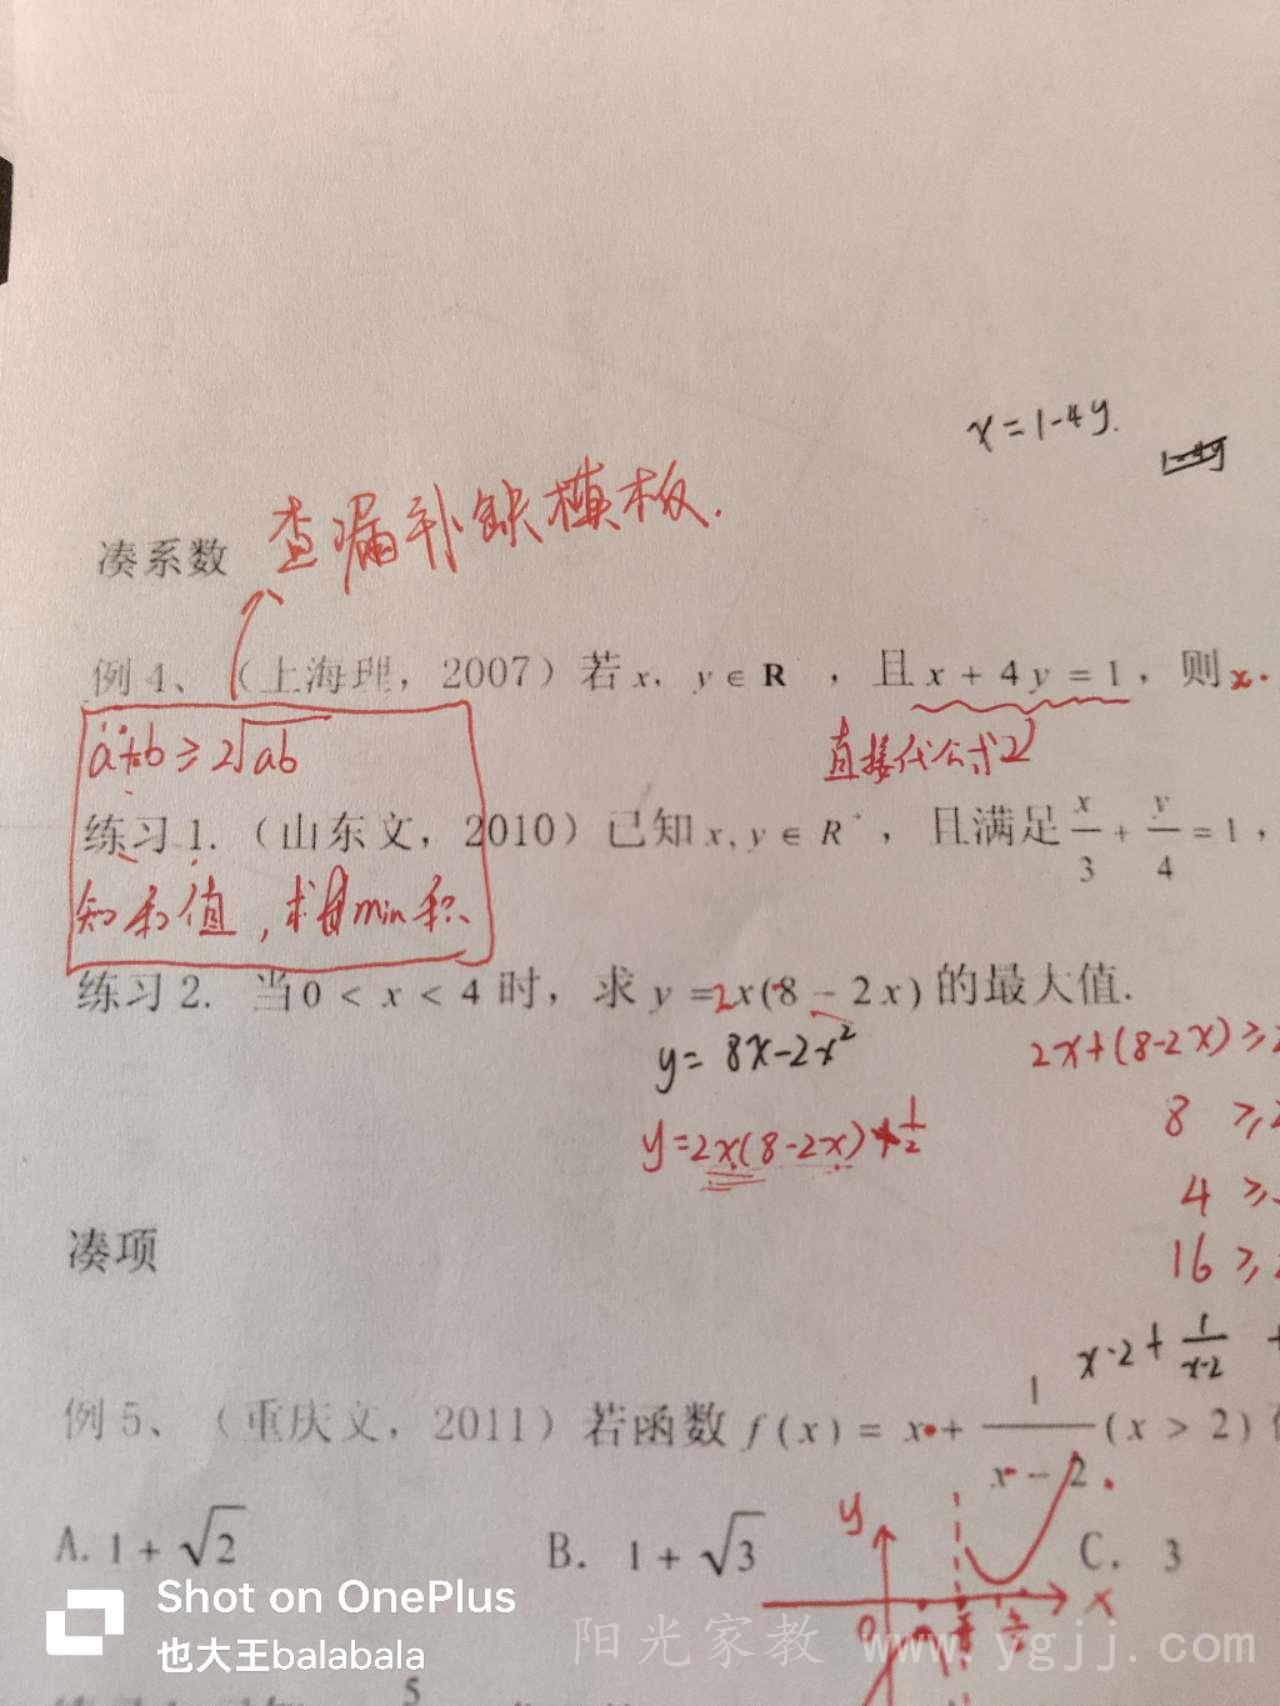 x=1-4y.
1-4y
凑系数 查漏补缺模板.
例4、(上海理，2007)若x，y∈R ，且x+4y=1，则x·
a+b≥2√ab
直接代公式2
练习1.(山东文，2010)已知x,y∈R⁺，且满足x/3+y/4=1，
知和值，求 min积
练习2. 当0<x<4时，求y=2x(8-2x)的最大值.
y=8x-2x²
2x+(8-2x)≥2
y=2x(8-2x)*1/2
8 ≥2
4 ≥
16 ≥
凑项
x-2+1/(x-2) +
例5、(重庆文，2011)若函数f(x)=x+1/(x-2)(x>2)
A. 1+√2 B. 1+√3 C. 3
y
x
0
Shot on OnePlus
也大王balabala
阳光家教 www.ygjj.com
5